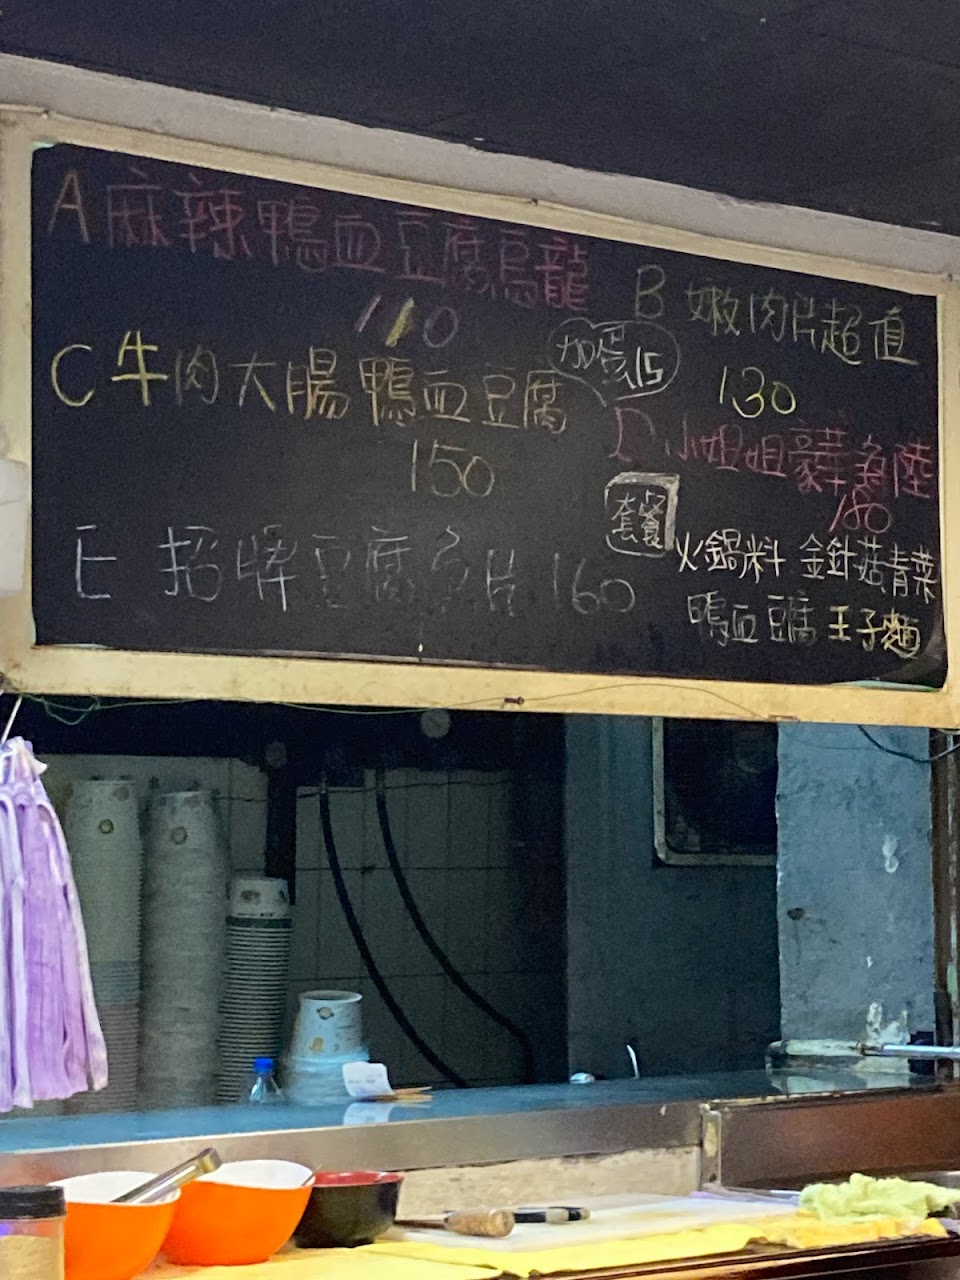 A 麻辣鴨血豆腐烏龍
110
B 嫩肉片超值
130
加蛋15
C 牛肉大腸鴨血豆腐
150
D 小姐姐豪華海陸
180
E 招牌豆腐魚片 160
套餐
火鍋料 金針菇青菜
鴨血豆腐 王子麵